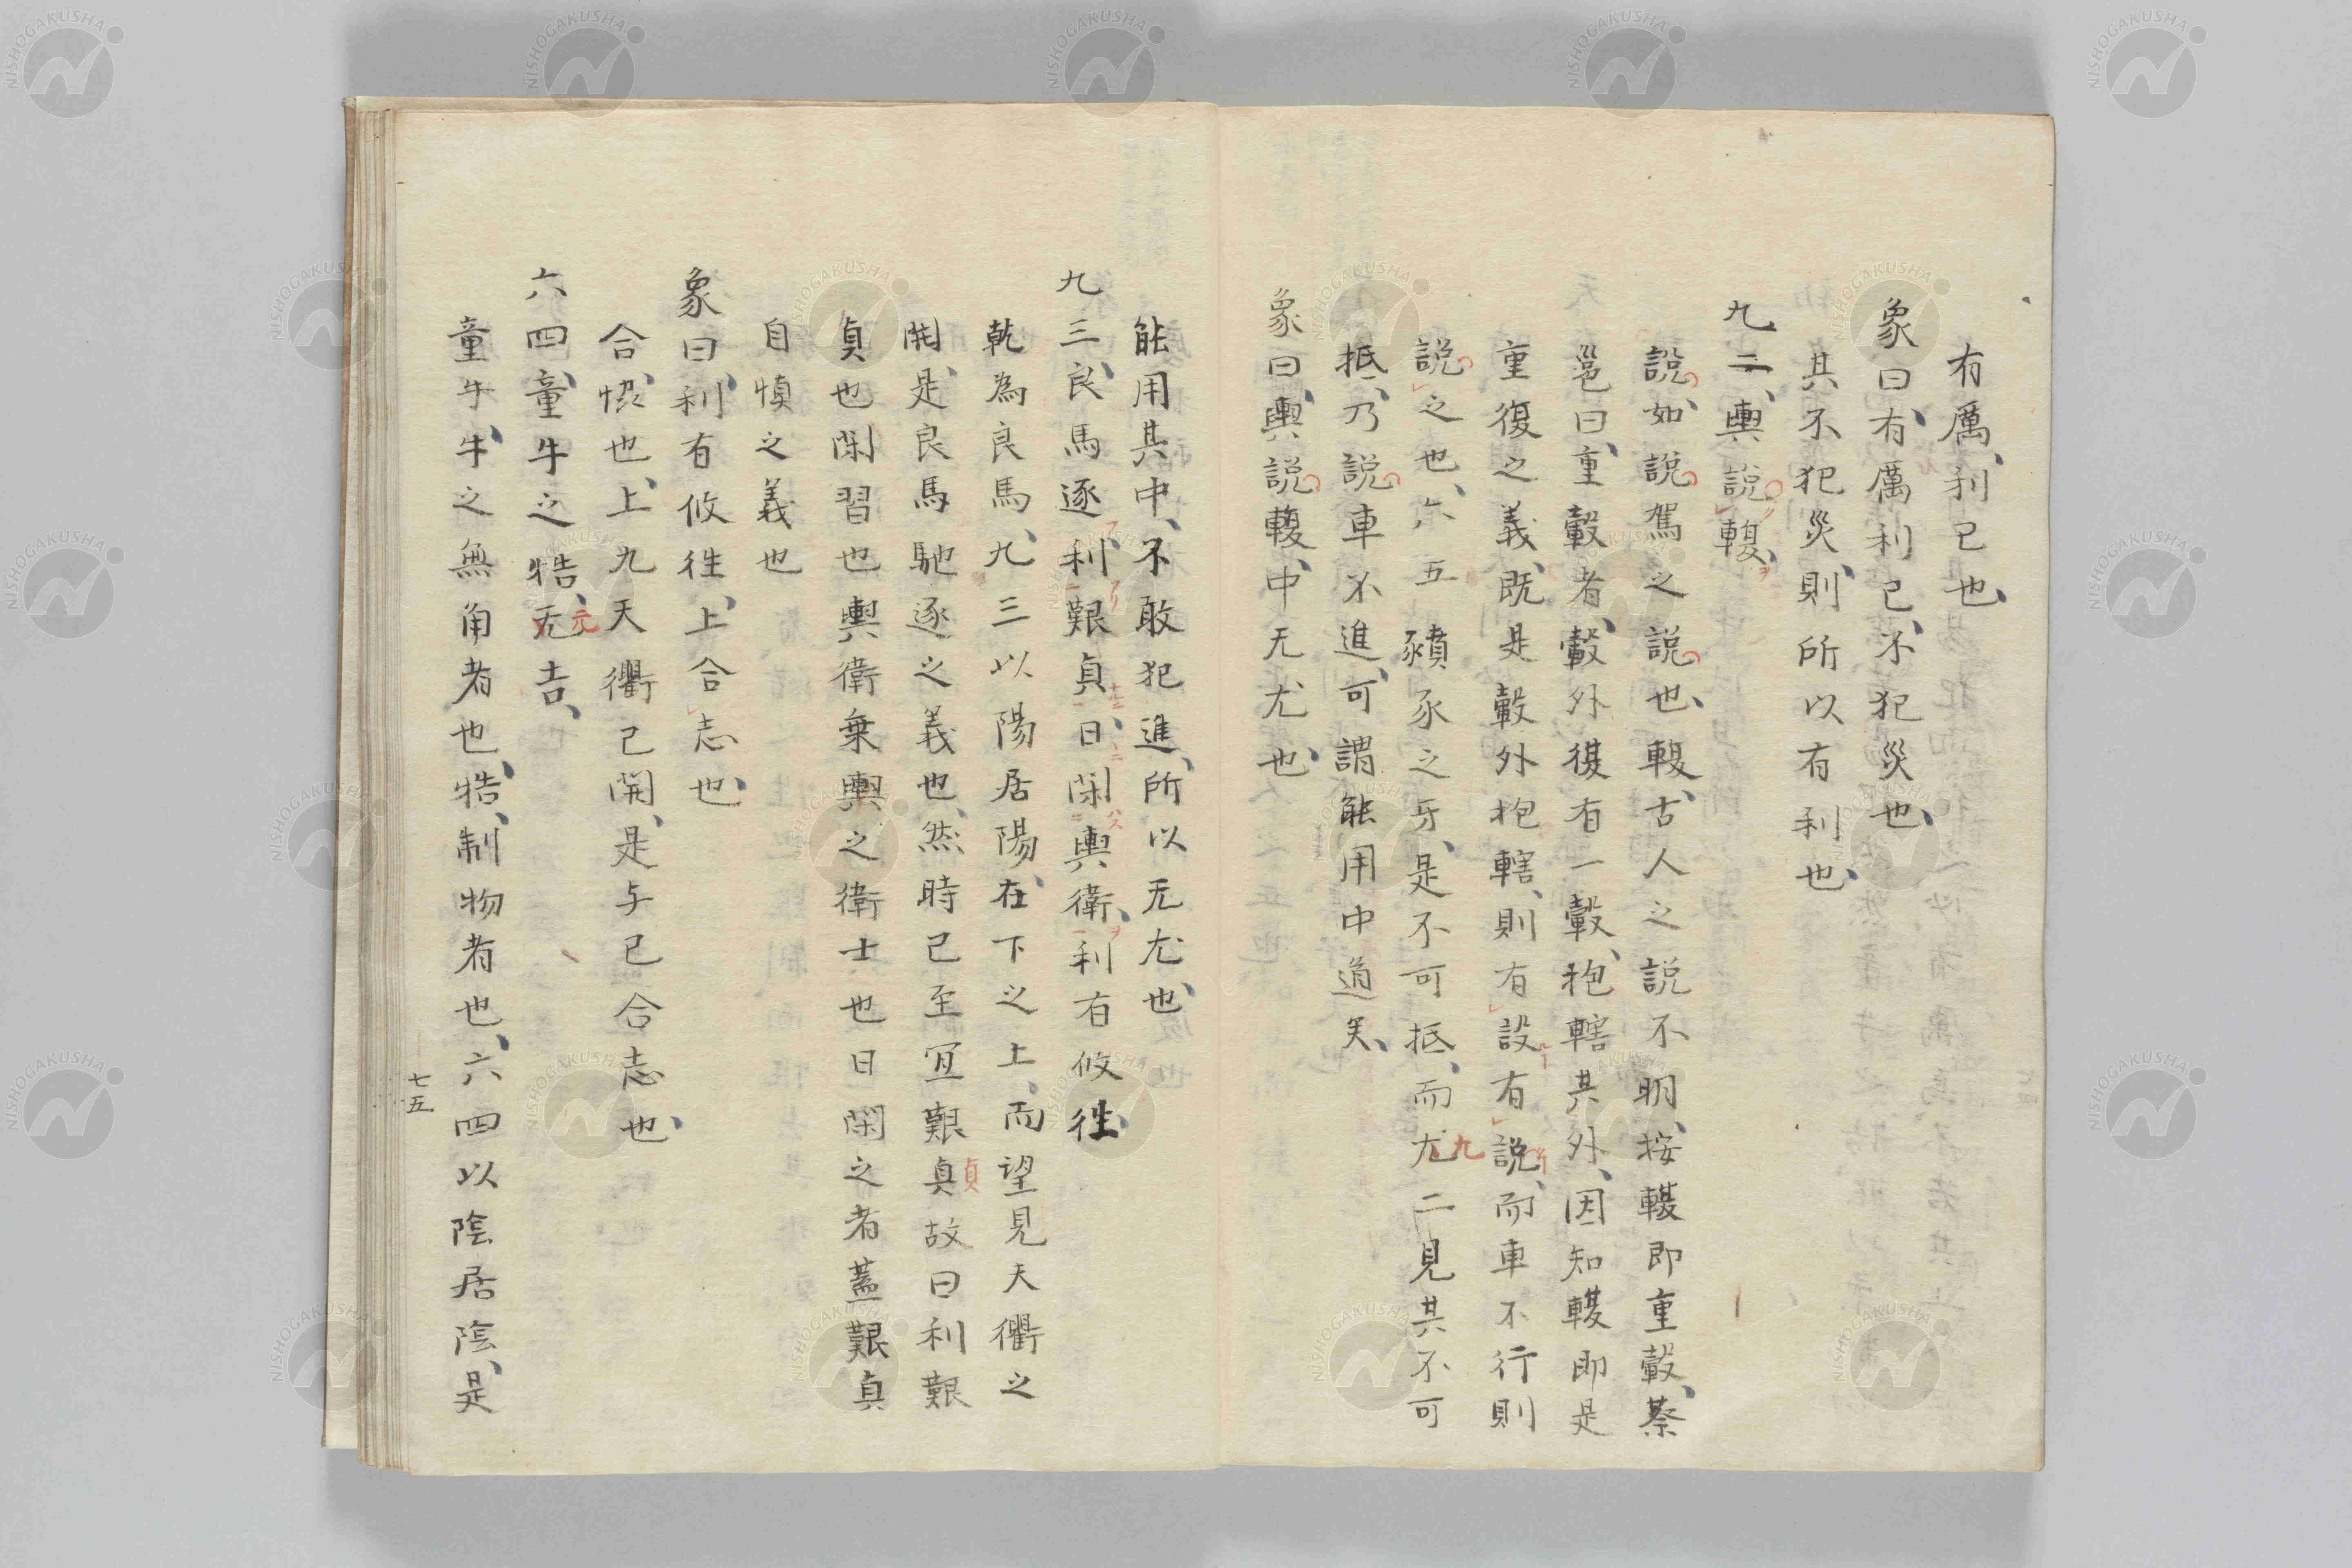 有厲、利已也、
象曰、有厲利已、不犯災也、
其不犯災、則所以有利也、
九二、輿説輹、
説如、説駕之説也、輹、古人之説不明、按輹即重轂、蔡
邕曰、重轂者、轂外復有一轂、抱轄其外、因知輹即是
重復之義、既是轂外抱轄、則有設有説、而車不行則
説之也、六五豶豕之牙、是不可抵、而尤九二見其不可
抵、乃説車不進、可謂能用中道矣、
象曰、輿説輹、中无尤也、
能用其中、不敢犯進、所以无尤也、
九三、良馬逐、利艱貞、日閑輿衛、利有攸往、
乾為良馬、九三以陽居陽、在下之上、而望見天衢之
開、是良馬馳逐之義也、然時已至宜艱真貞故曰利艱
貞也閑習也輿衛乗輿之衛士也日閑之者蓋艱貞
自慎之義也
象曰、利有攸往、上合志也、
合㤗也、上九天衢已開、是与已合志也、
六四、童牛之牿、无元吉、
童牛、牛之無角者也、牿、制物者也、六四以陰居陰、是
七五
NISHOGAKUSHA